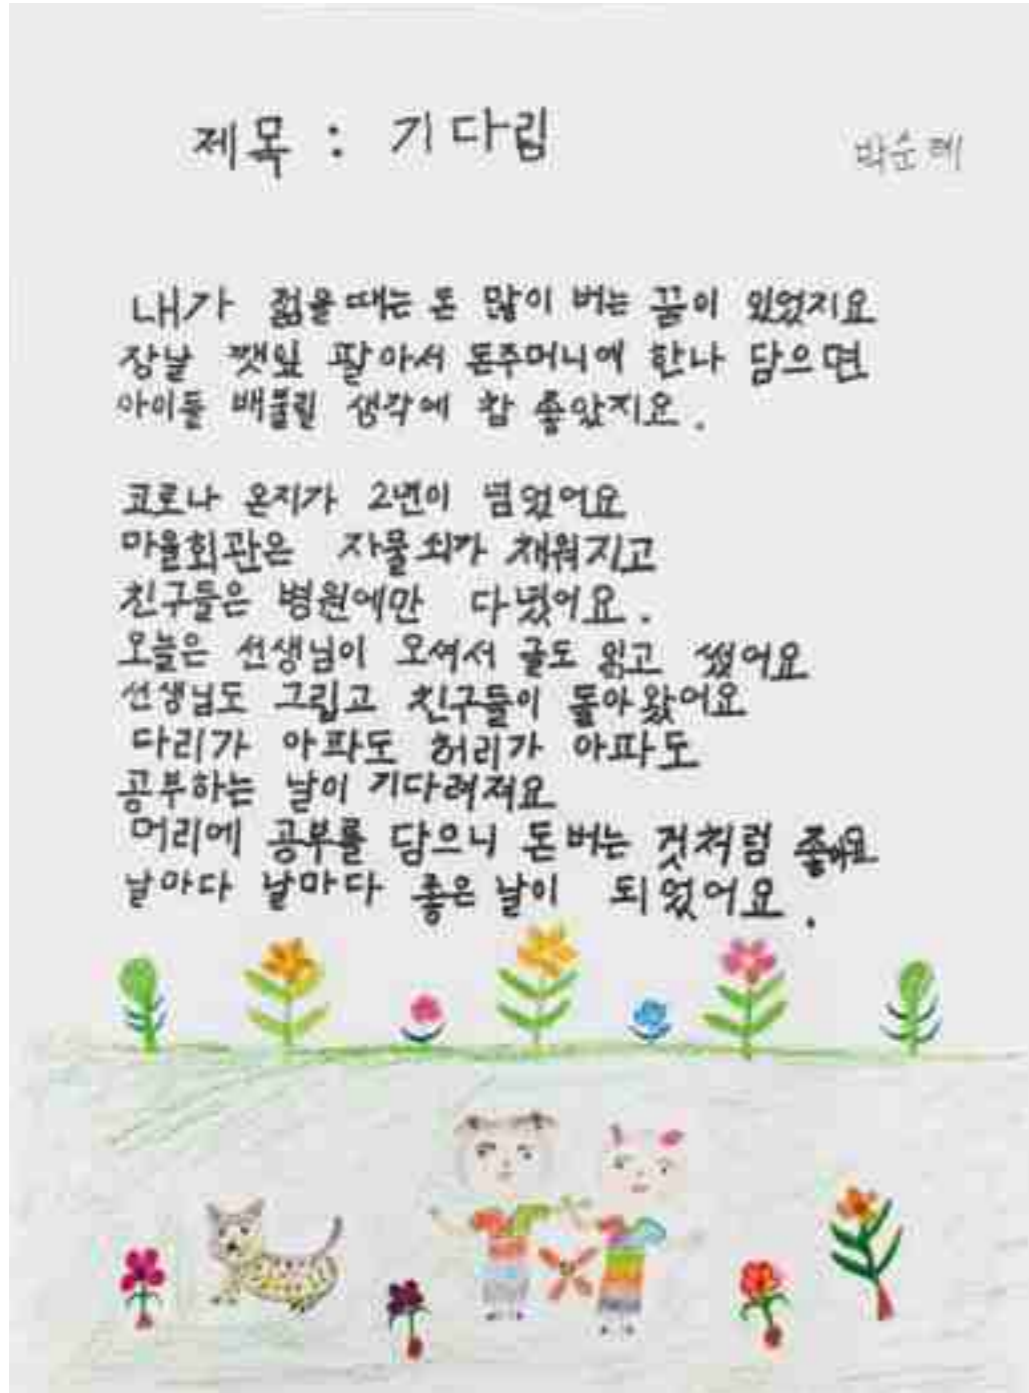 제목 : 기다림
박순례
내가 젊을때는 돈 많이 버는 꿈이 있었지요
장날 깻잎 팔아서 돈주머니에 한나 담으면
아이들 배불릴 생각에 참 좋았지요.
코로나 온지가 2년이 넘었어요
마을회관은 자물쇠가 채워지고
친구들은 병원에만 다녔어요.
오늘은 선생님이 오셔서 글도 읽고 썼어요
선생님도 그립고 친구들이 돌아왔어요
다리가 아파도 허리가 아파도
공부하는 날이 기다려져요
머리에 공부를 담으니 돈버는 것처럼 좋아요
날마다 날마다 좋은 날이 되었어요.